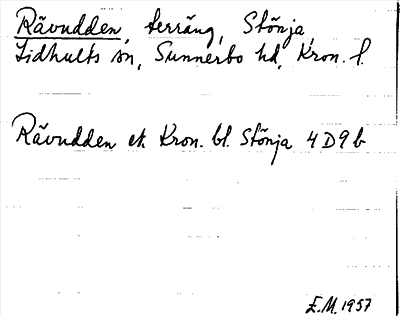 Rävudden, terräng, Stönja,
Lidhults sn, Sunnerbo hd, Kron. l.
Rävudden ek Kron. bl. Stönja 4D9b
E.M. 1957